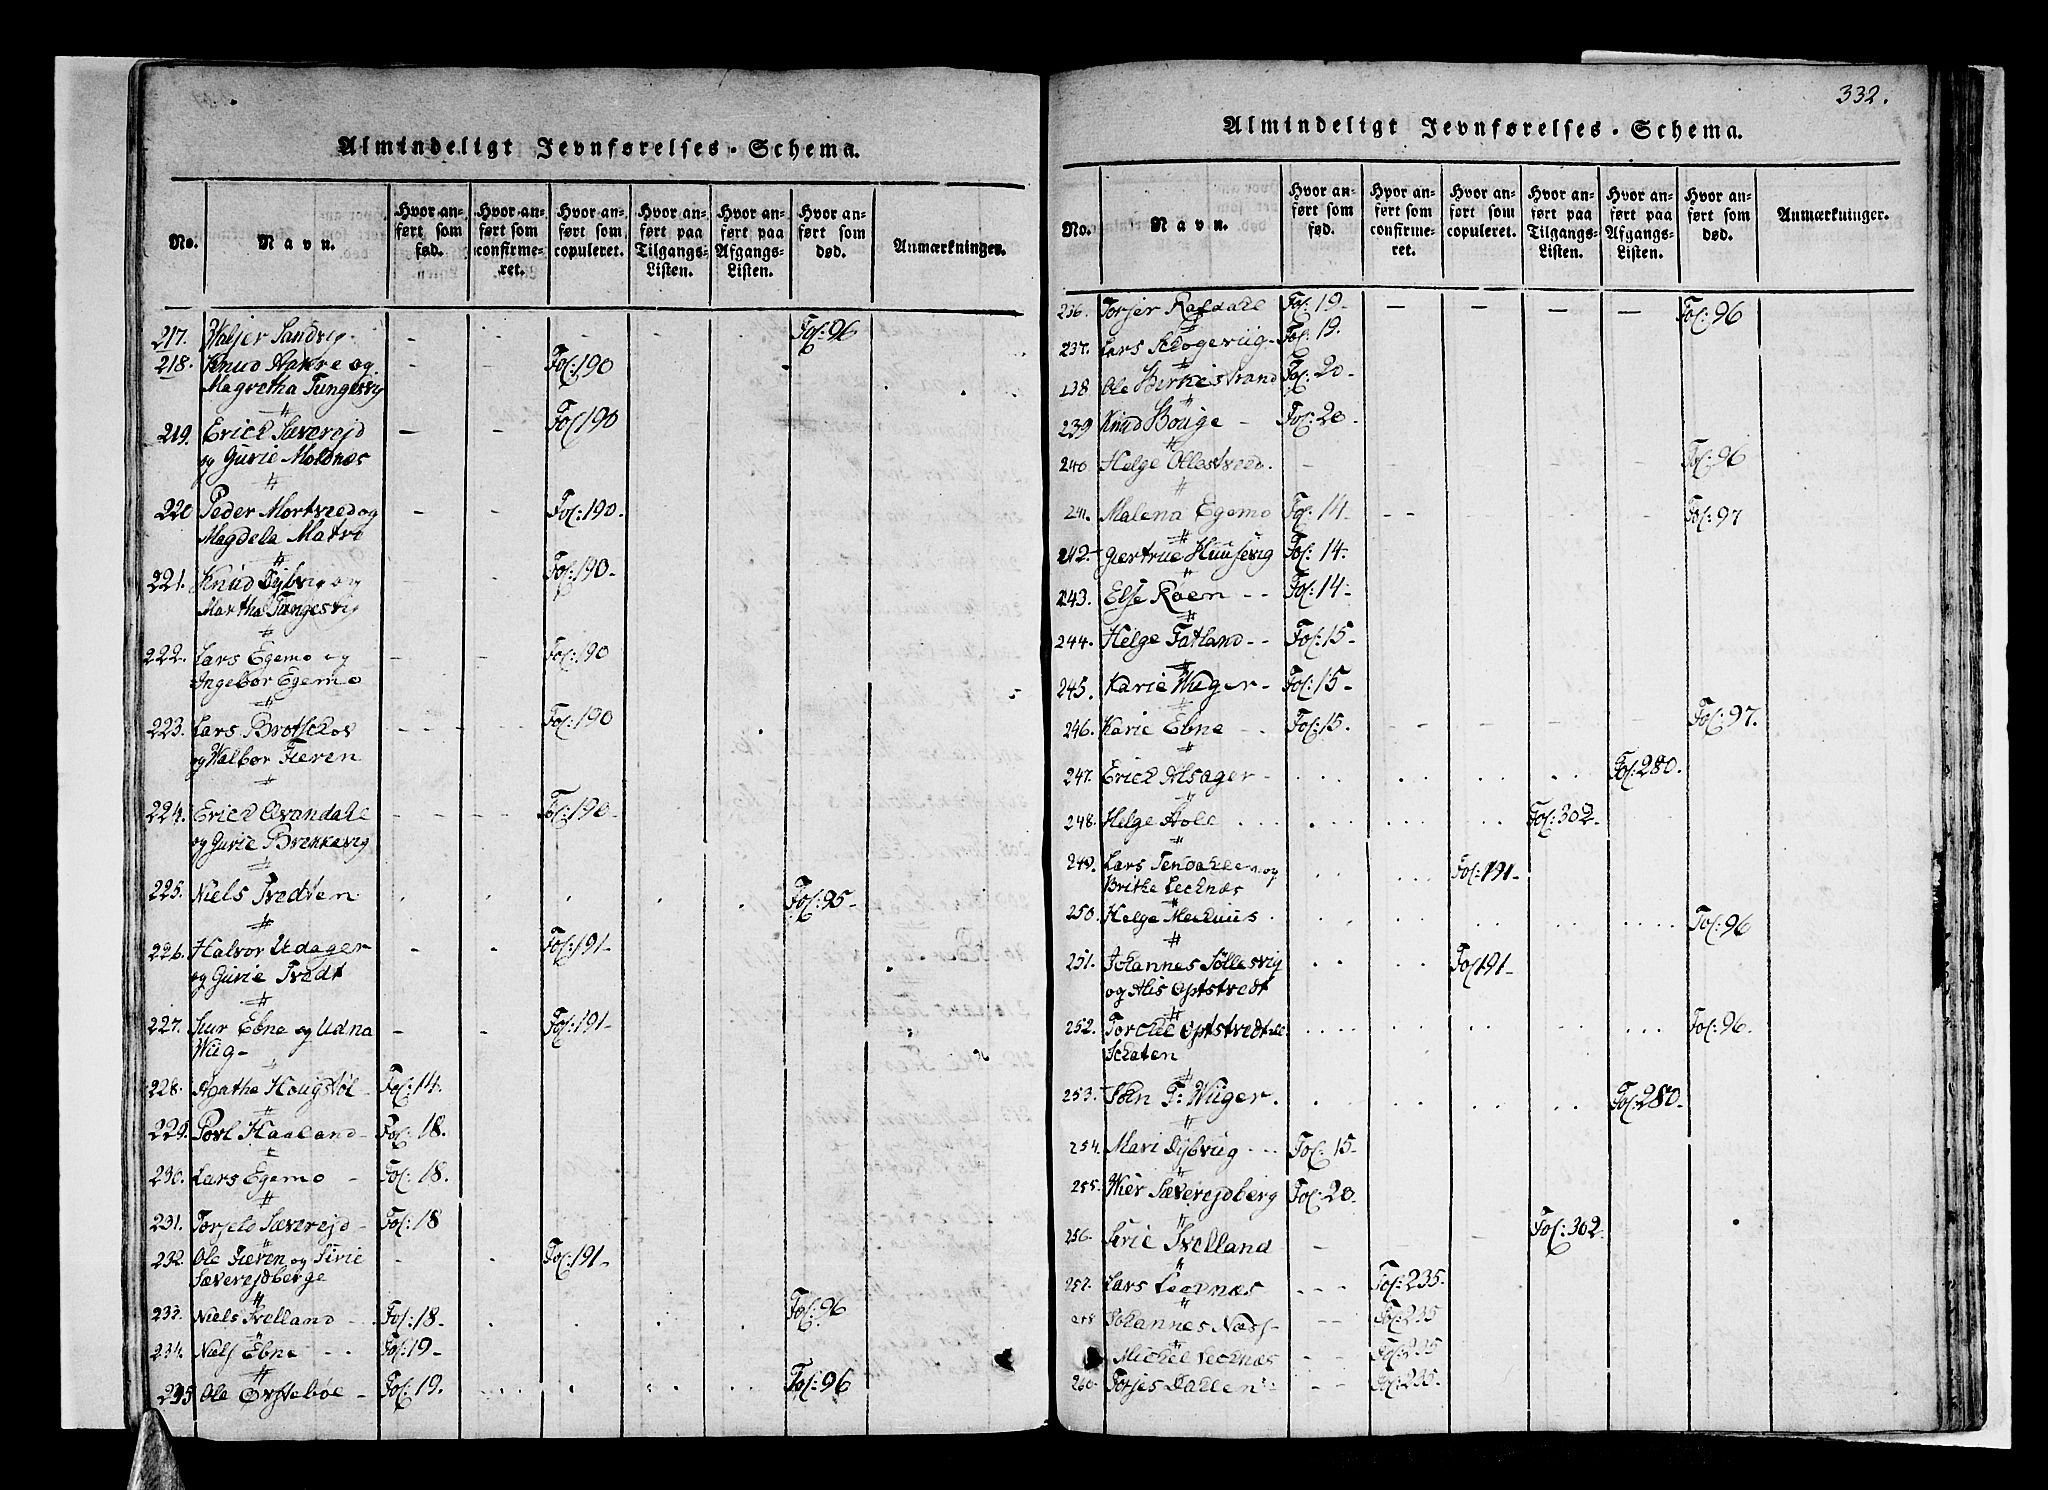 Almindeligt Jevnførelses-Schema.
No. Navn. Hvor anført som fød. Hvor anført som confirmeret. Hvor anført som copuleret. Hvor anført paa Tilgangs-Listen. Hvor anført paa Afgangs-Listen. Hvor anført som død. Anmærkninger.
217. Sandvig. - - - - - Fol: 96
218. Knud Aakre og - - Fol: 190
Magretha Tungesvig
219. Erick Sæverejd - - Fol 190
og Gurie Moldnæs
220 Peder Mortveed og - - Fol: 190.
Magdela Matre
221. Knud Dybvig og - - Fol: 190-
Martha Tungesvig
222. Lars Egemo og - - Fol: 190
Ingebor Egemo
223. Lars - - Fol: 190
og Walbor Fieren
224. Erick - - Fol: 190-
og Gurie Brekkevig
225. Niels Tvedten . . . . . Fol: 95-
226. Halvor Udager - - Fol: 191-
og Gurie Tvedt
227. Siur Ebne og Udna - - Fol: 191-
Wiig-
228. Agatha Hougstøl Fol: 14.
229. Povl Haaland- Fol: 18.
230. Lars Egemo - Fol: 18.
231. Torjels Sæverejd- Fol: 18
232. Ole Fieren og Sirie - - Fol: 191-
Sæverejdberge
233. Niels Tvelland - Fol: 18- . . . . Fol: 96
234. Næls Ebne - . . Fol: 19-
235 Ole Ørstebøe - Fol: 19. Fol: 96
332.
Almindeligt Jevnførelses-Schema.
No. Navn. Hvor anført som fød. Hvor anført som confirmeret. Hvor anført som copuleret. Hvor anført paa Tilgangs-Listen. Hvor anført paa Afgangs-Listen. Hvor anført som død. Anmærkninger.
236. Torjer Rafdahl Fol: 19- - - - - Fol: 96
237. Lars Fol: 19.
238 Ole Birkestrand Fol: 20-
239 Knud Bouge - Fol: 20-
240. Helge Ollestveed. - - - - - Fol: 96
241. Malena Egemo Fol: 14- Fol: 97
242- Gertrue Huusevig Fol: 14-
243. Else Røen - - Fol: 14-
244. Helge Fatland - - Fol: 15-
245. Karie Wiiger- Fol: 15-
246. Karie Ebne - - Fol: 15. Fol: 97.
247. Erick Alsager- Fol: 280.
248. Helge Hole Fol: 302-
249. Lars og Fol: 191-
Brithe Leeknæs
250. Helge Fol: 96
251. Johannes Søllesvig Fol: 191-
og Alis Optstvedt
252. Torckel Optstvedt Fol: 96.
253. T: Wiiger. Fol: 280-
254. Mari Dybviig - - - Fol: 15-
255. Wier Sæverejdberg Fol: 20.
256. Serie Tvelland - Fol: 302.
257. Lars Leeknæs - - - Fol: 235.
258 Johannes Næss- - - Fol: 235
Michel Leeknæs - - Fol: 235
260. Torjes Dahlen - - Fol: 235.